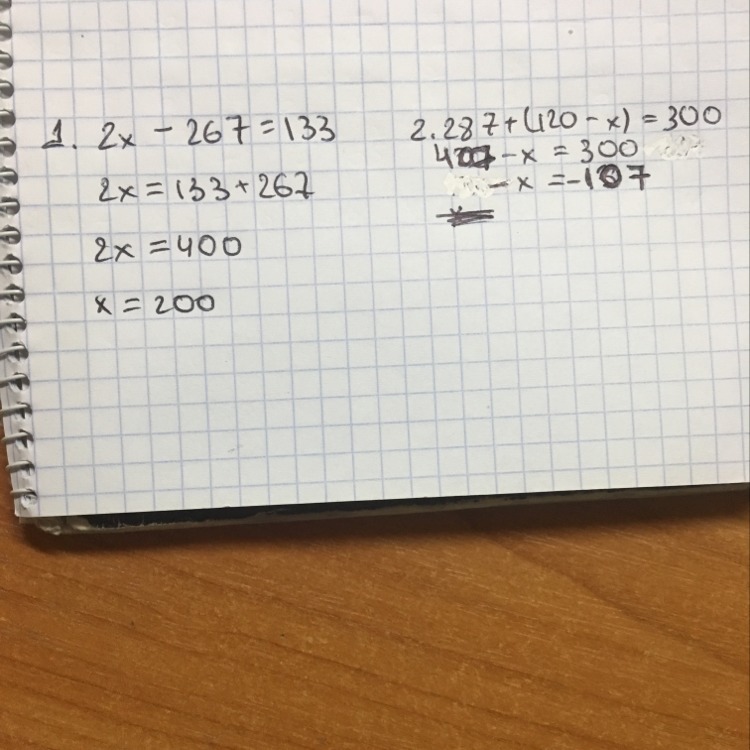 1. 2x - 267 = 133
2x = 133 + 267
2x = 400
x = 200
2. 287 + (120 - x) = 300
407 - x = 300
- x = -107